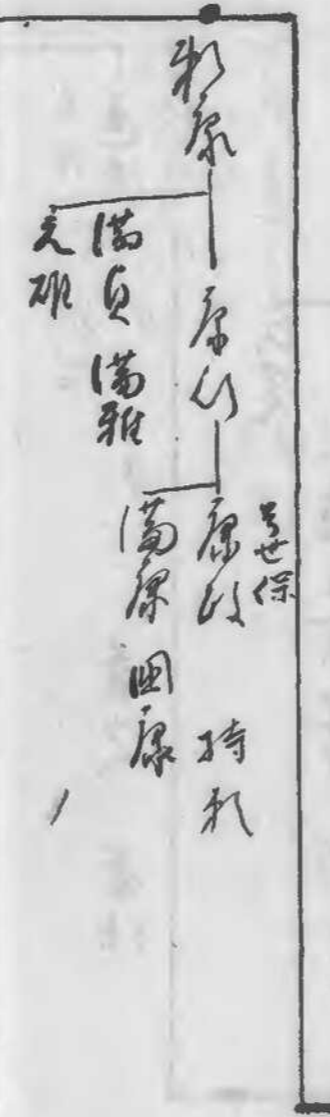 頼康
康行
号世保
康政
持頼
満貞
満雅
満康
国康